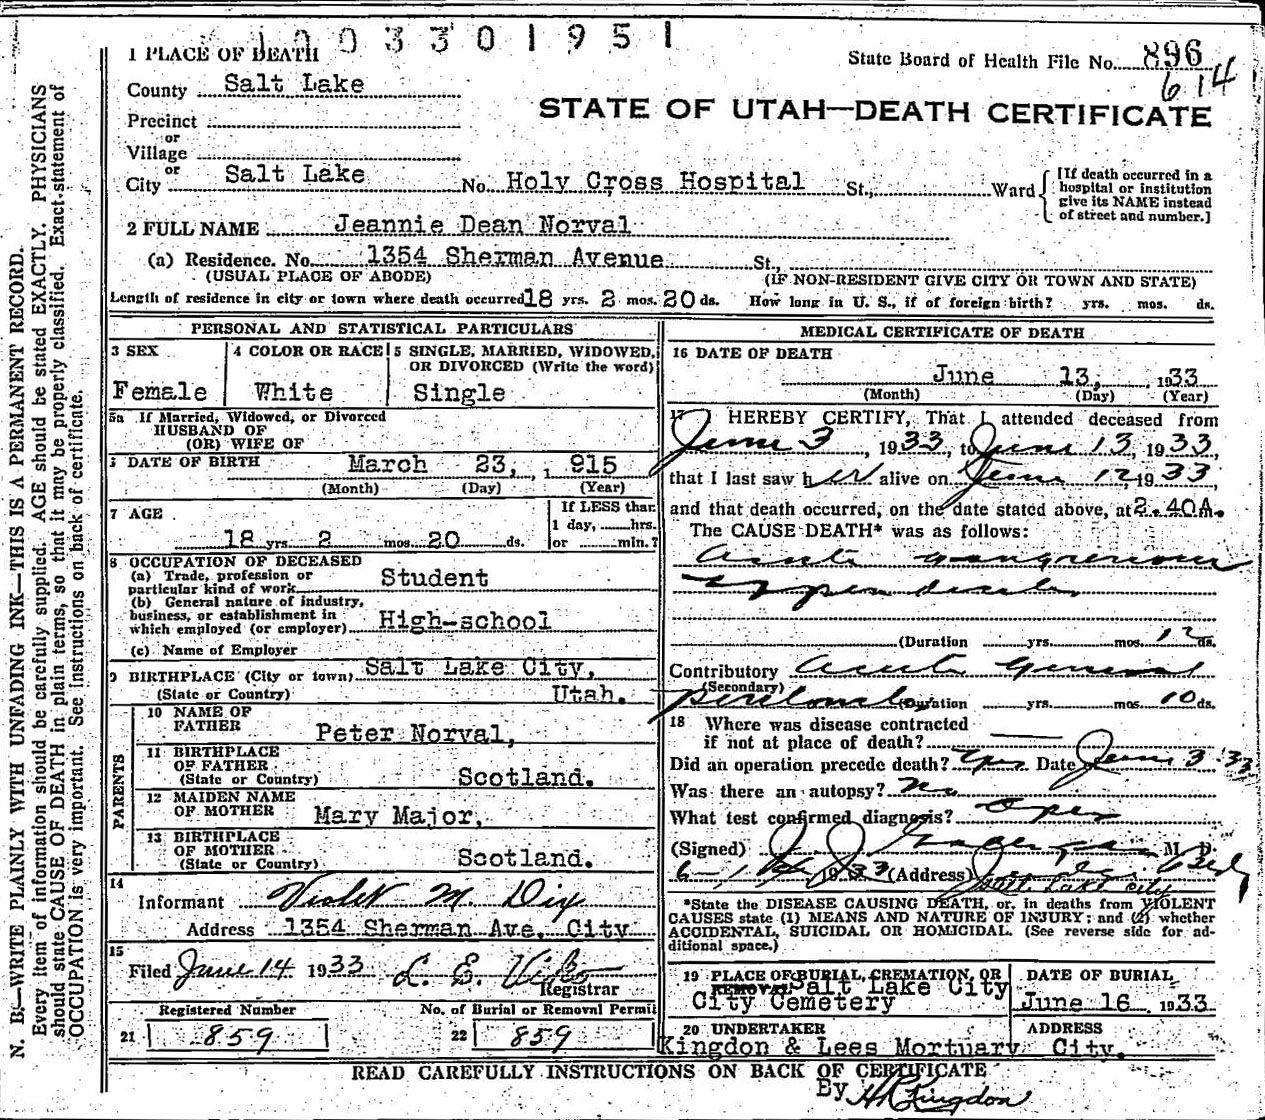 1003301951
1 PLACE OF DEATH
State Board of Health File No. 896
614
County Salt Lake
STATE OF UTAH—DEATH CERTIFICATE
Precinct
or
Village
or
City Salt Lake No. Holy Cross Hospital St., Ward
[If death occurred in a
hospital or institution
give its NAME instead
of street and number.]
2 FULL NAME Jeannie Dean Norval
(a) Residence. No. 1354 Sherman Avenue St.,
(USUAL PLACE OF ABODE) (IF NON-RESIDENT GIVE CITY OR TOWN AND STATE)
Length of residence in city or town where death occurred 18 yrs. 2 mos. 20 ds. How long in U. S., if of foreign birth? yrs. mos. ds.
PERSONAL AND STATISTICAL PARTICULARS
3 SEX
Female
4 COLOR OR RACE
White
5 SINGLE, MARRIED, WIDOWED,
OR DIVORCED (Write the word)
Single
5a If Married, Widowed, or Divorced
HUSBAND OF
(OR) WIFE OF
DATE OF BIRTH March 23, , 915
(Month) (Day) (Year)
7 AGE
18 yrs. 2 mos. 20 ds.
If LESS than
1 day, hrs.
or min.?
8 OCCUPATION OF DECEASED
(a) Trade, profession or
particular kind of work Student
(b) General nature of industry,
business, or establishment in
which employed (or employer) High-school
(c) Name of Employer
9 BIRTHPLACE (City or town) Salt Lake City,
(State or Country) Utah.
PARENTS
10 NAME OF
FATHER Peter Norval,
11 BIRTHPLACE
OF FATHER
(State or Country) Scotland.
12 MAIDEN NAME
OF MOTHER Mary Major,
13 BIRTHPLACE
OF MOTHER
(State or Country) Scotland.
14
Informant Violet M. Dix
Address 1354 Sherman Ave. City
15
Filed June 14 1933 L. E. Viko
Registrar
Registered Number No. of Burial or Removal Permit
21 859 22 859
MEDICAL CERTIFICATE OF DEATH
16 DATE OF DEATH
June 13, 1933
(Month) (Day) (Year)
17 I HEREBY CERTIFY, That I attended deceased from
June 3, 1933, to June 13, 1933,
that I last saw her alive on June 12, 1933,
and that death occurred, on the date stated above, at 2.40A.
The CAUSE DEATH* was as follows:
Acute gangrenous
appendicitis
(Duration yrs. mos. 12 ds.
Contributory Acute General
(Secondary)
peritonitis Duration yrs. mos. 10 ds.
18 Where was disease contracted
if not at place of death?
Did an operation precede death? Yes Date June 3 '33
Was there an autopsy? No
What test confirmed diagnosis? Oper
(Signed) M. D.
1933 (Address) Salt Lake City
*State the DISEASE CAUSING DEATH, or, in deaths from VIOLENT
CAUSES state (1) MEANS AND NATURE OF INJURY; and (2) whether
ACCIDENTAL, SUICIDAL OR HOMICIDAL. (See reverse side for ad-
ditional space.)
19 PLACE OF BURIAL, CREMATION, OR
REMOVAL Salt Lake City
City Cemetery
DATE OF BURIAL
June 16 1933
20 UNDERTAKER ADDRESS
Kingdon & Lees Mortuary City.
READ CAREFULLY INSTRUCTIONS ON BACK OF CERTIFICATE
By H R Kingdon
N. B.—WRITE PLAINLY WITH UNFADING INK—THIS IS A PERMANENT RECORD.
Every item of information should be carefully supplied. AGE should be stated EXACTLY. PHYSICIANS
should state CAUSE OF DEATH in plain terms, so that it may be properly classified. Exact statement of
OCCUPATION is very important. See instructions on back of certificate.